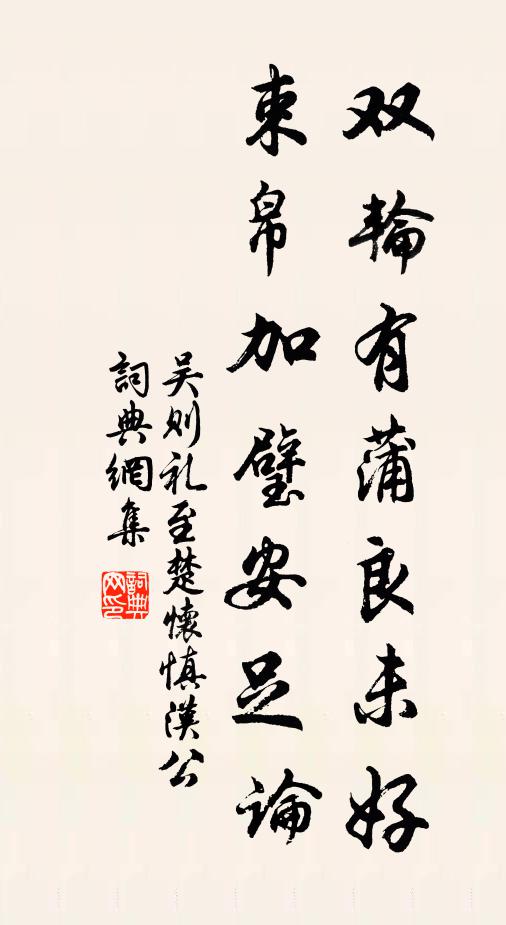 双輪有蒲良未好
束帛加璧安足论
吴则礼至楚懷慎漢公
詞典網集
詞典网印